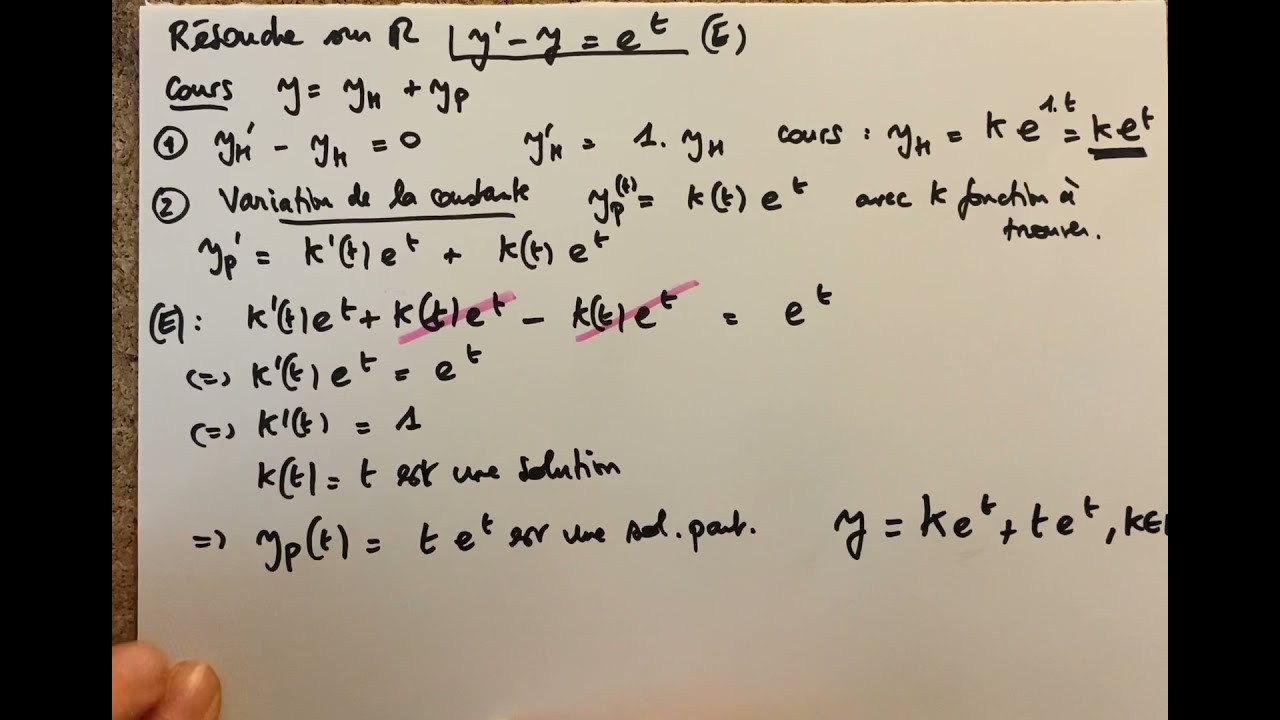 Résoudre sur ℝ y' - y = e^t (E)
Cours y = y_H + y_P
① y_H' - y_H = 0 y_H' = 1. y_H cours : y_H = k e^{1.t} = k e^t
② Variation de la constante y_P(t) = k(t) e^t avec k fonction à
trouver.
y_P' = k'(t) e^t + k(t) e^t
(E) : k'(t) e^t + k(t) e^t - k(t) e^t = e^t
(=) k'(t) e^t = e^t
(=) k'(t) = 1
k(t) = t est une solution
=> y_P(t) = t e^t est une sol. part. y = k e^t + t e^t, k∈